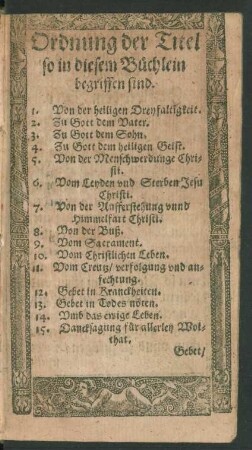 Ordnung der Titel
so in diesem Büchlein
begriffen sind.
1. Von der heiligen Dreyfaltigkeit.
2. Zu Gott dem Vater.
3. Zu Gott dem Sohn.
4. Zu Gott dem heiligen Geist.
5. Von der Menschwerdunge Chri-
sti.
6. Vom Leyden vnd Sterben Jesu
Christi.
7. Von der Aufferstehung vnnd
Himmelfart Christi.
8. Von der Buß.
9. Vom Sacrament.
10. Vom Christlichen Leben.
11. Vom Creutz/ verfolgung vnd an-
fechtung.
12. Gebet in Kranckheiten.
13. Gebet in Todes nöten.
14. Vmb das ewige Leben.
15. Dancksagung für allerley Wol-
that.
Gebet/